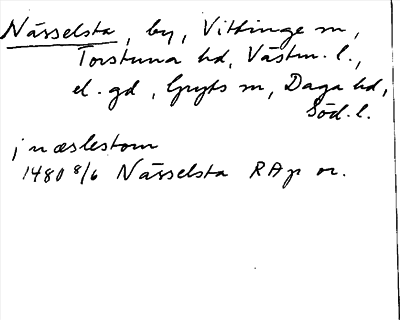 Nässelsta, by, Vittinge sn,
Torstuna hd, Västm. l.,
el. gd, Gryts sn, Daga hd,
Söd. l.
j næslestom
1480 8/6 Nässelsta RAp or.